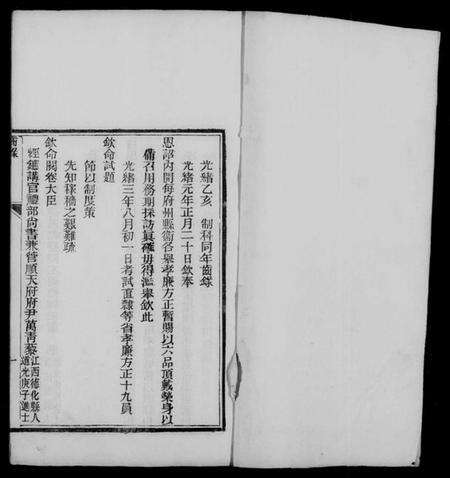 光緒乙亥 制科同年齒錄
光緒元年正月二十日欽奉
恩詔內開每府州縣衛各舉孝廉方正暫賜以六品頂戴榮身以
備召用務期採訪眞確毋得濫舉欽此
光緒三年八月初一日考試直隸等省孝廉方正十九員
欽命試題
節以制度策
先知稼穡之艱難疏
欽命閱卷大臣
經筵講官禮部尙書兼管順天府府尹萬青藜江西德化縣人
道光庚子進士
齒錄
一